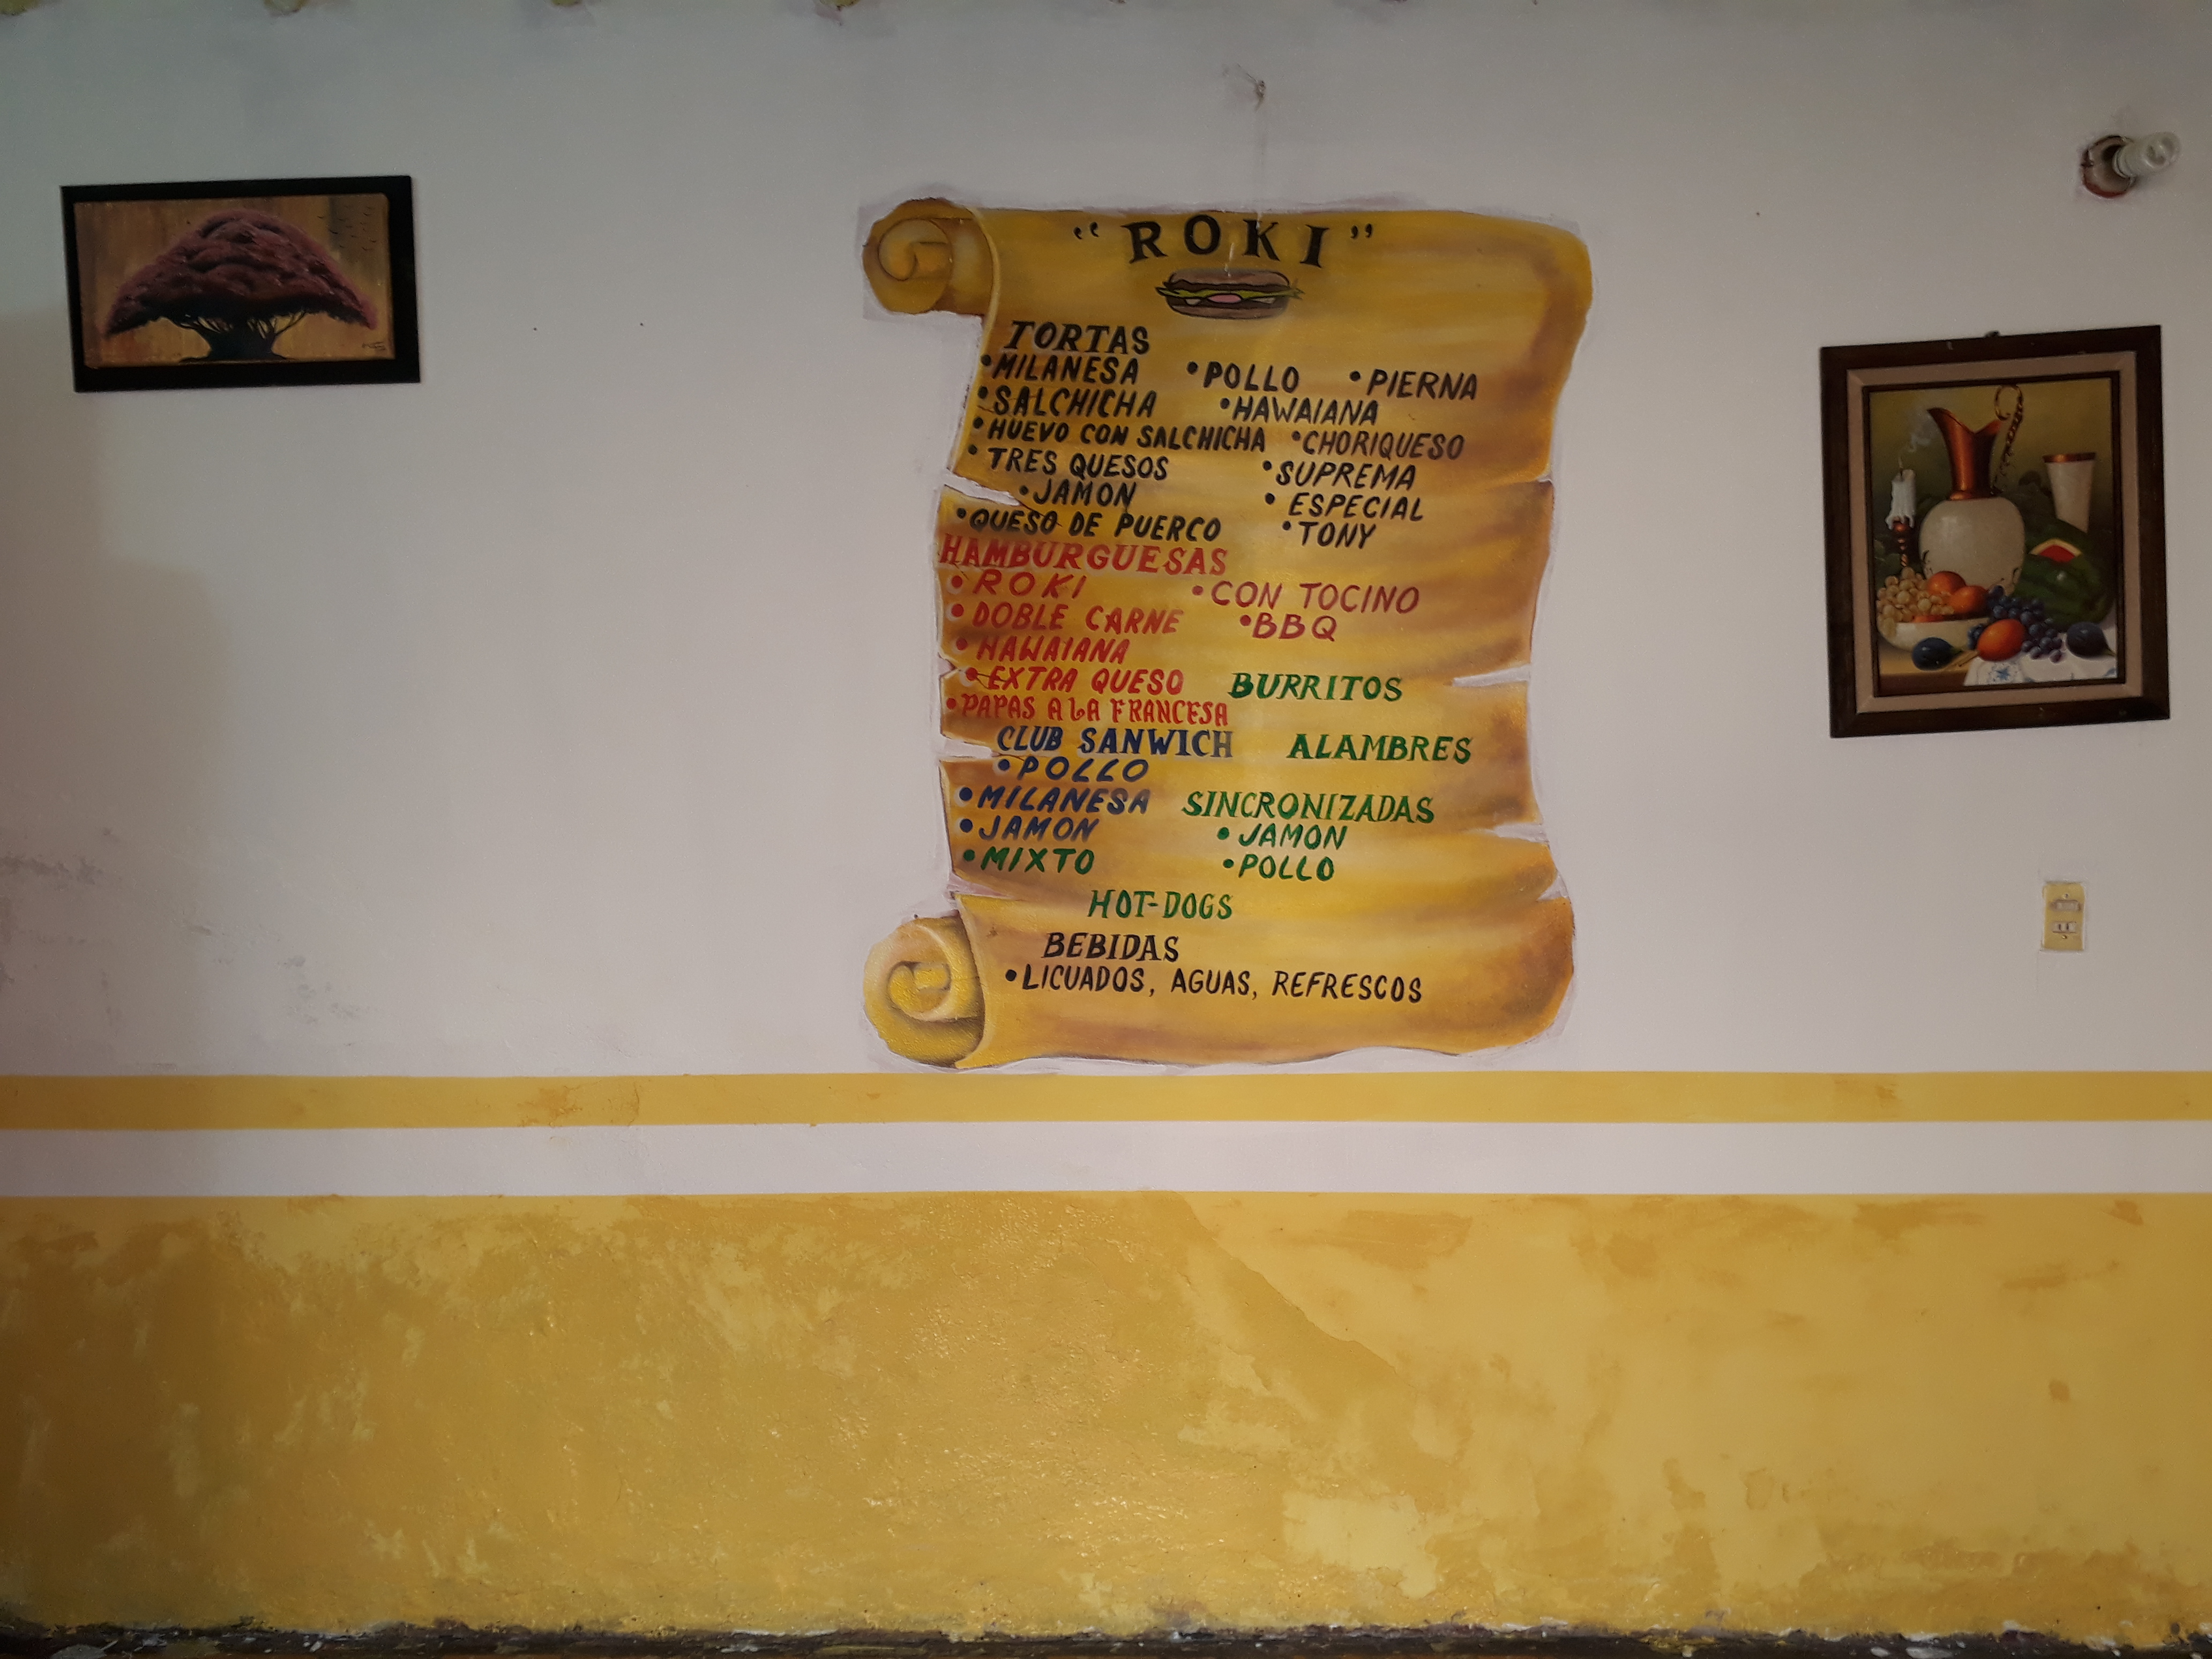 "ROKI"
TORTAS
•MILANESA •POLLO •PIERNA
•SALCHICHA •HAWAIANA
•HUEVO CON SALCHICHA •CHORIQUESO
•TRES QUESOS •SUPREMA
•JAMON •ESPECIAL
•QUESO DE PUERCO •TONY
HAMBURGUESAS
•ROKI •CON TOCINO
•DOBLE CARNE •BBQ
•HAWAIANA
•EXTRA QUESO BURRITOS
•PAPAS A LA FRANCESA
CLUB SANWICH ALAMBRES
•POLLO
•MILANESA SINCRONIZADAS
•JAMON •JAMON
•MIXTO •POLLO
HOT-DOGS
BEBIDAS
•LICUADOS, AGUAS, REFRESCOS